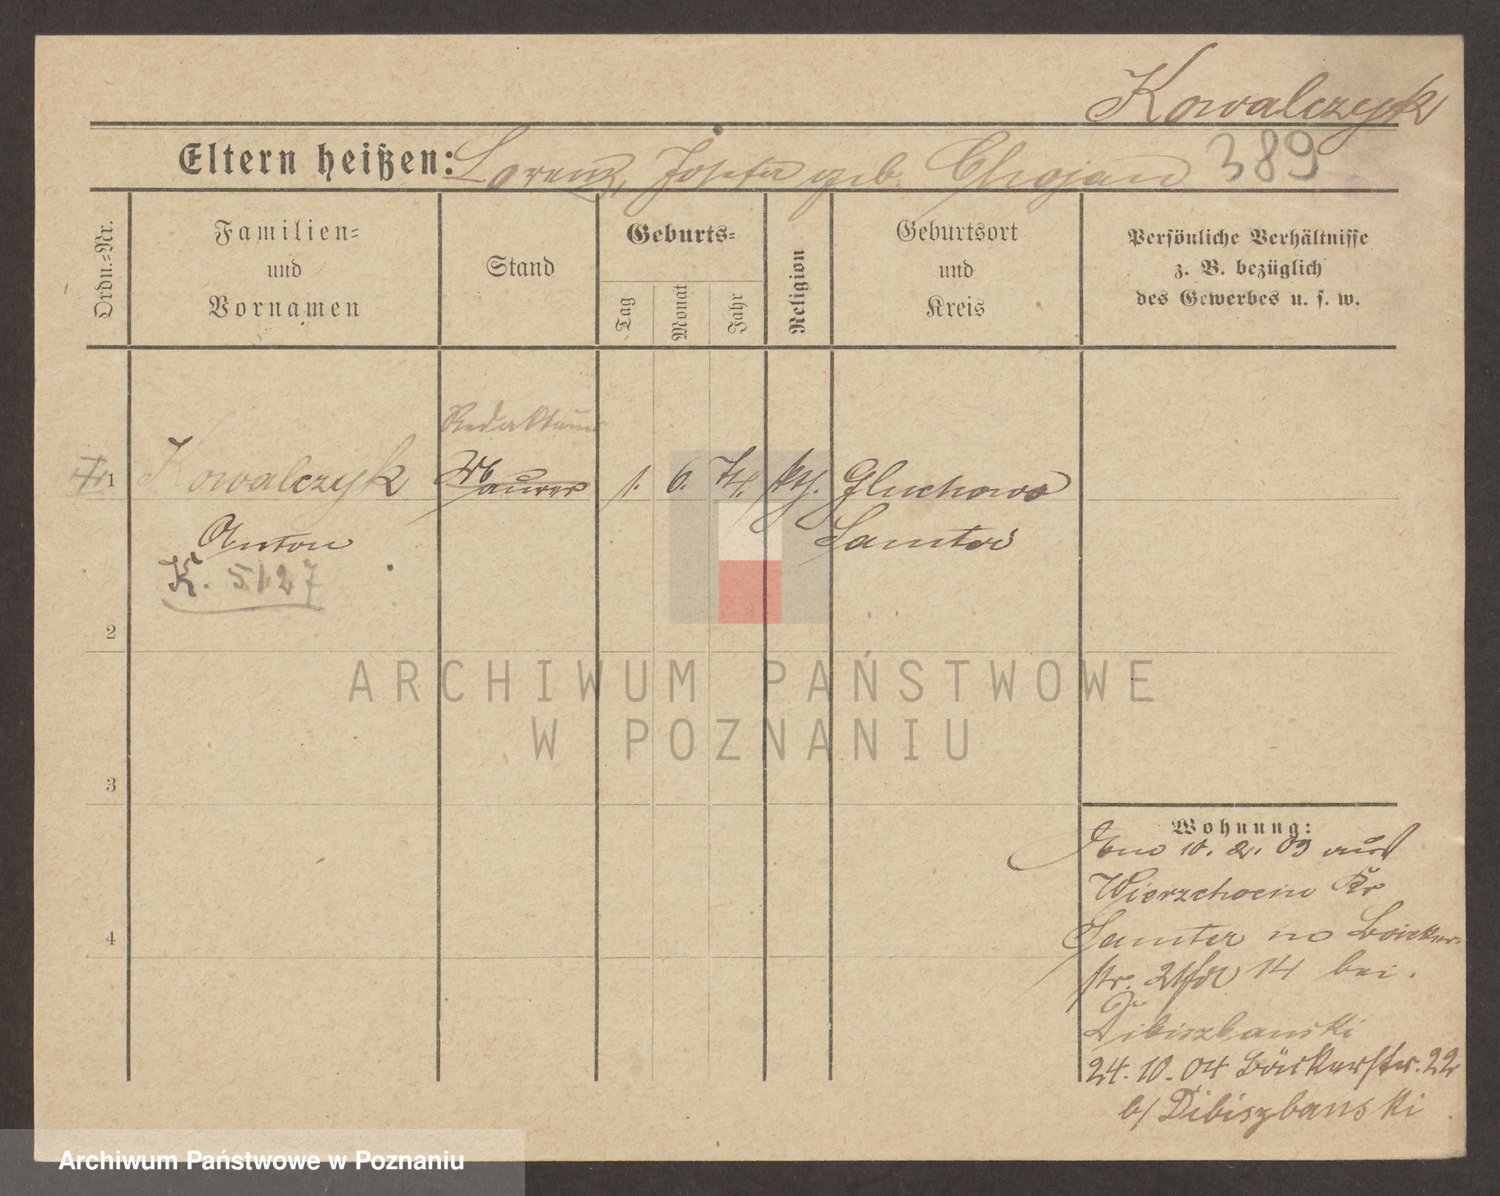 Kowalczyk
389
Eltern heißen: Lorenz, Josefa geb. Chojan
Ordn.-Nr.
Familien-
und
Vornamen
Stand
Geburts-
Tag
Monat
Jahr
Religion
Geburtsort
und
Kreis
Persönliche Verhältnisse
z. B. bezüglich
des Gewerbes u. s. w.
Redakteur
1 Kowalczyk Maurer 1. 6. 74. kth. Gluchowo
Anton Samter
K. 5127
2
3
4
Wohnung:
10. 2. 03 aus
Wierzchocin Kr
Samter Bäcker-
str. 21 14 bei
Dibiszbanski
24. 10. 04 Bäckerstr. 22
b/ Dibiszbanski
ARCHIWUM PAŃSTWOWE
W POZNANIU
Archiwum Państwowe w Poznaniu